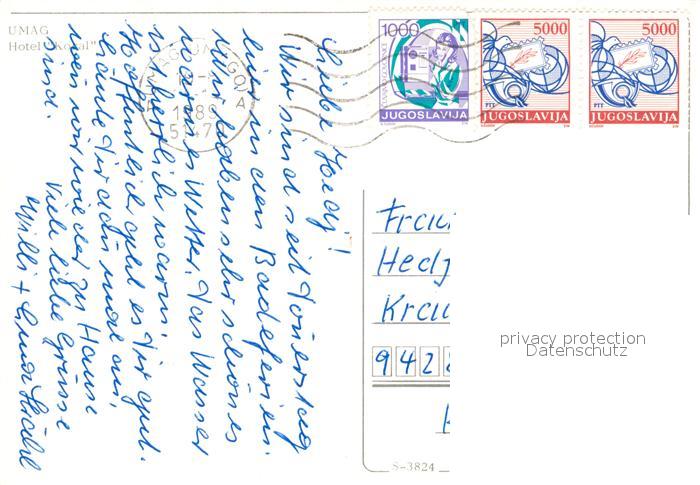 UMAG
Hotel "Koral"
1000
JUGOSLAVIJA
5000
PTT
JUGOSLAVIJA
5000
PTT
JUGOSLAVIJA
1989
51470
Liebe Hedy!
Wir sind seit Donerstag
hier in den Badeferien.
Wir haben sehr schönes
warmes Wetter. Das Wasser
ist herlich warm.
Hoffentlich geht es Dir gut.
Läute Dir dann mal an,
wen wir wieder zu Hause
sind.
Viele liebe Grüsse
Willi +
Frau
Hedy
Krau
942
privacy protection
Datenschutz
S-3824